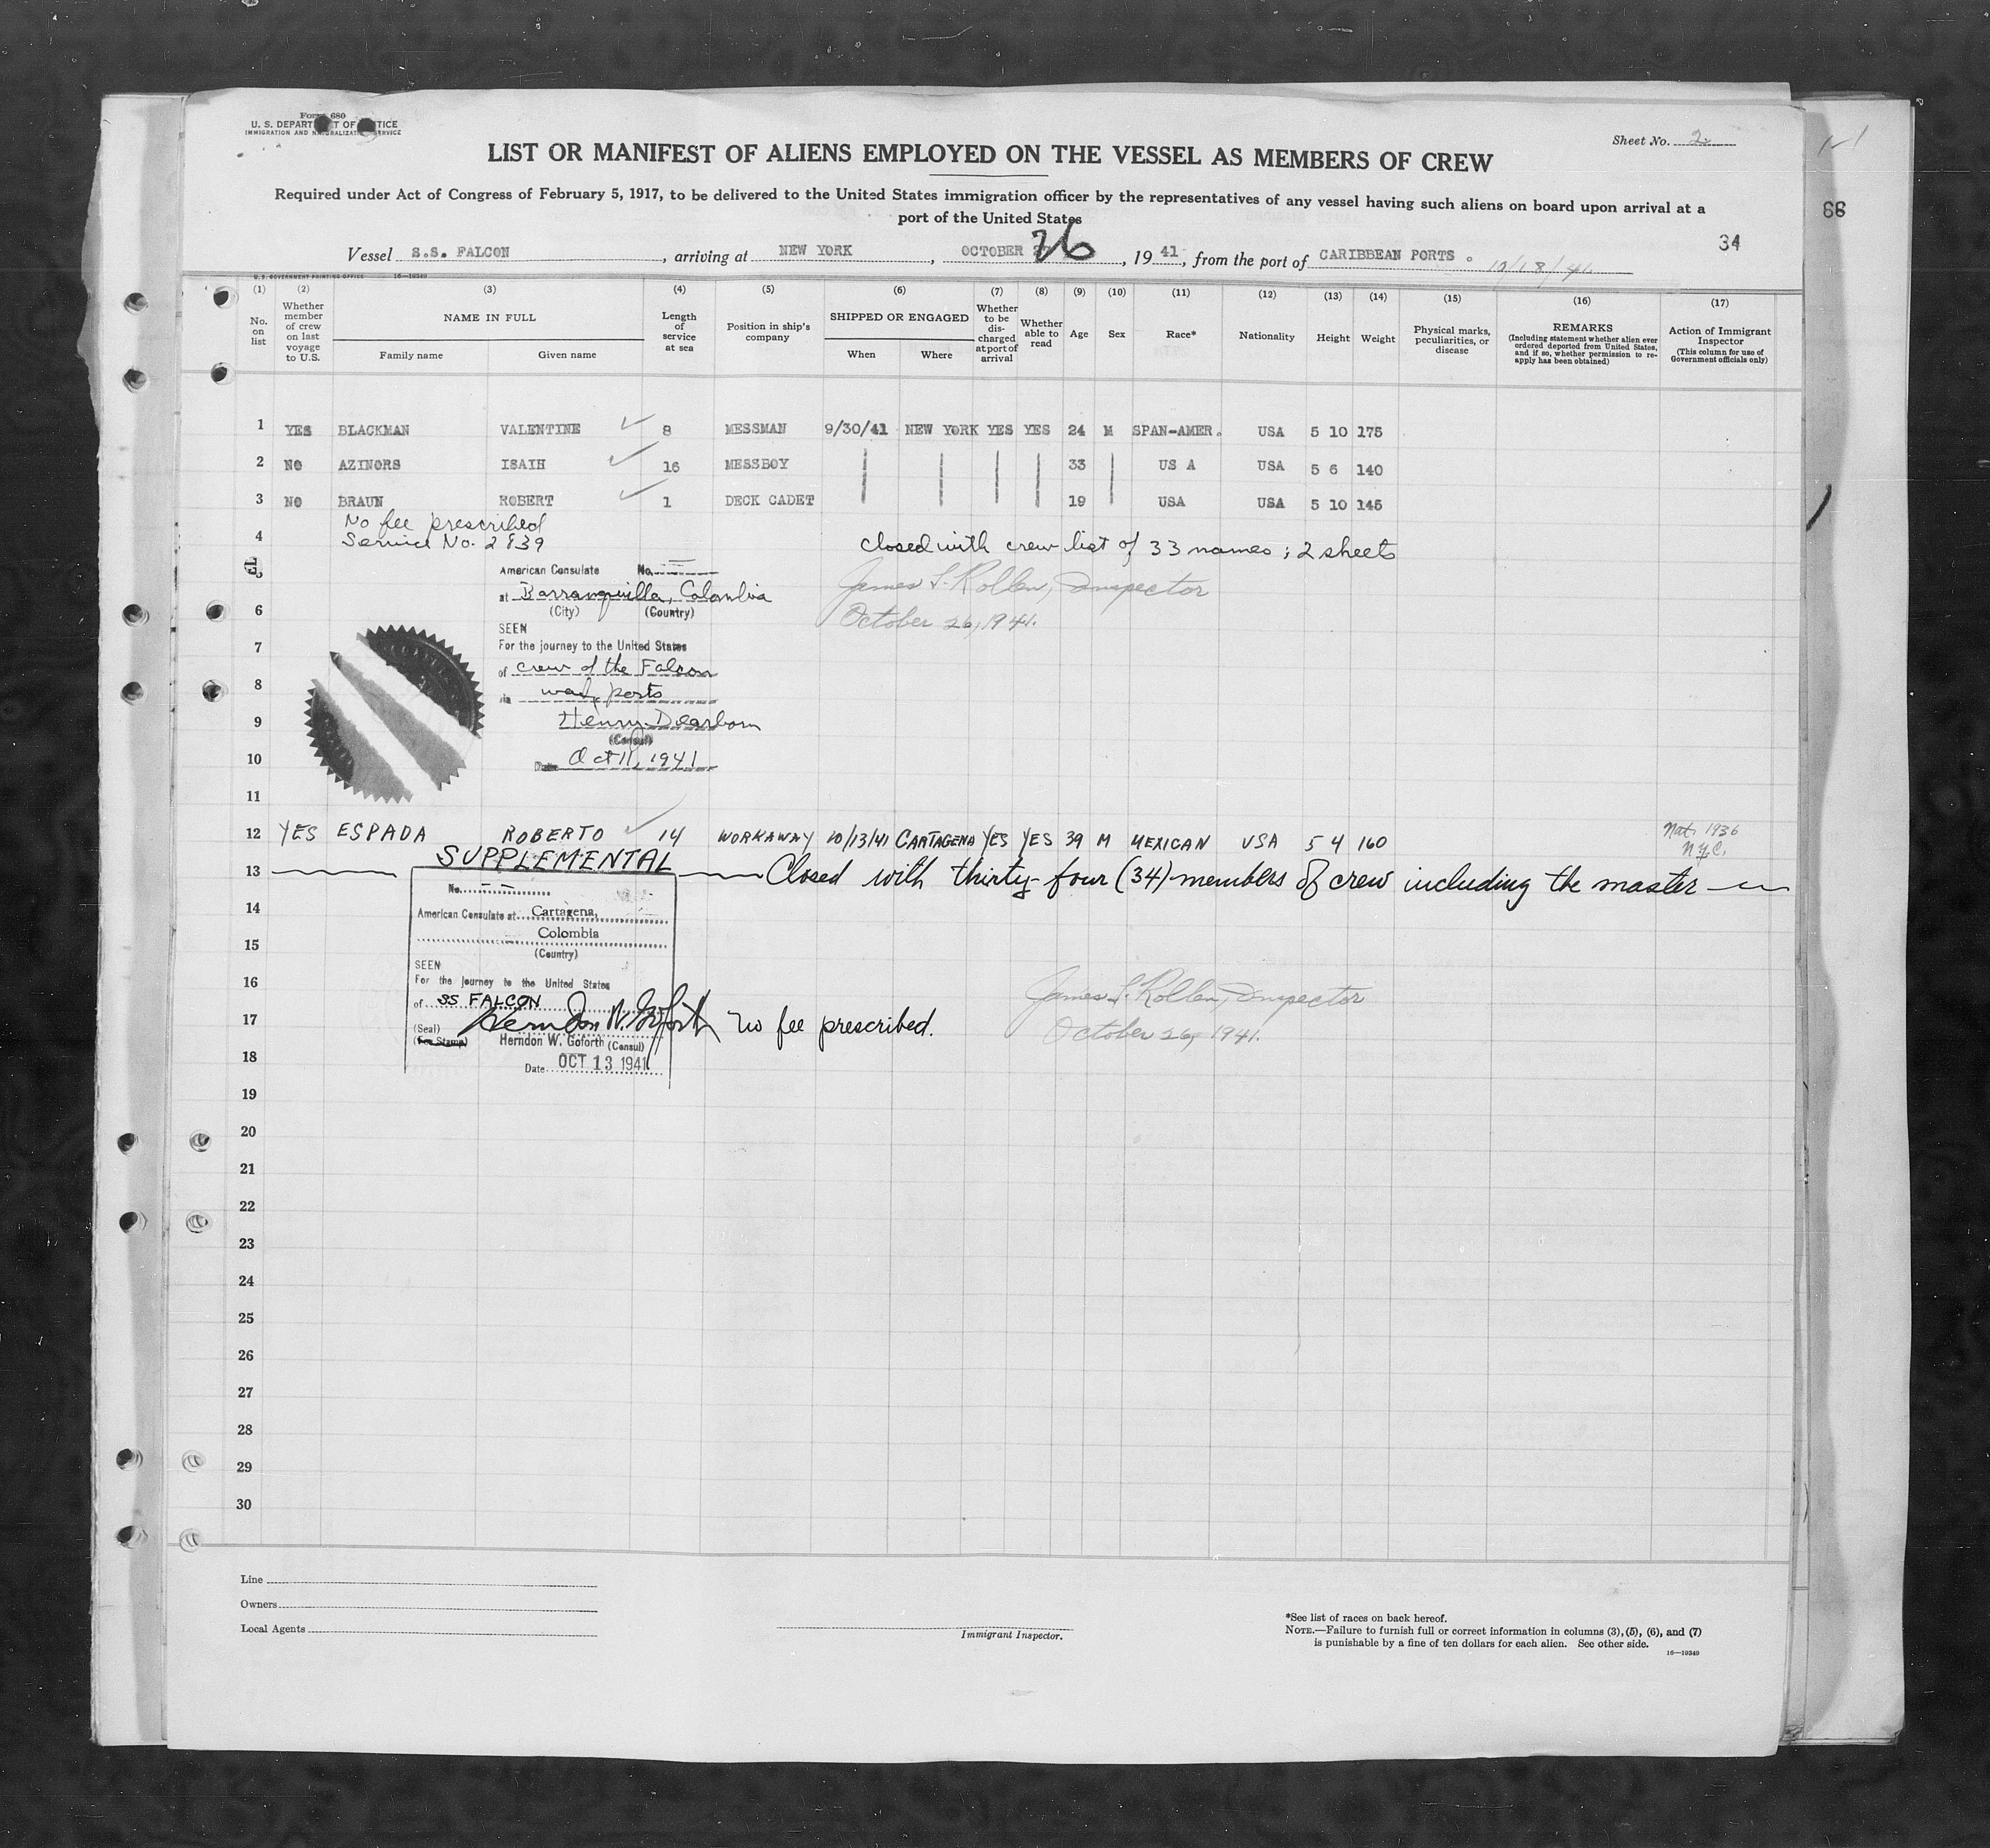 Form 680
U. S. DEPARTMENT OF JUSTICE
IMMIGRATION AND NATURALIZATION SERVICE
Sheet No. 2
LIST OR MANIFEST OF ALIENS EMPLOYED ON THE VESSEL AS MEMBERS OF CREW
Required under Act of Congress of February 5, 1917, to be delivered to the United States immigration officer by the representatives of any vessel having such aliens on board upon arrival at a
port of the United States
66
34
Vessel S.S. FALCON, arriving at NEW YORK, OCTOBER 26, 1941, from the port of CARIBBEAN PORTS. 10/18/41
U.S. GOVERNMENT PRINTING OFFICE 16-19349
(1) (2) (3) (4) (5) (6) (7) (8) (9) (10) (11) (12) (13) (14) (15) (16) (17)
No. on list
Whether member of crew on last voyage to U.S.
NAME IN FULL
Family name Given name
Length of service at sea
Position in ship's company
SHIPPED OR ENGAGED
When Where
Whether to be discharged at port of arrival
Whether able to read
Age
Sex
Race*
Nationality
Height
Weight
Physical marks, peculiarities, or disease
REMARKS
(Including statement whether alien ever ordered deported from United States, and if so, whether permission to re-apply has been obtained)
Action of Immigrant Inspector
(This column for use of Government officials only)
1 YES BLACKMAN VALENTINE 8 MESSMAN 9/30/41 NEW YORK YES YES 24 M SPAN-AMER. USA 5 10 175
2 NO AZINORS ISAIH 16 MESSBOY 33 US A USA 5 6 140
3 NO BRAUN ROBERT 1 DECK CADET 19 USA USA 5 10 145
No fee prescribed
4 Service No. 2839 closed with crew list of 33 names; 2 sheets
5 American Consulate No.
at Barranquilla, Colombia James S. Rollen, Inspector
6 (City) (Country) October 26, 1941.
SEEN
7 For the journey to the United States
of crew of the Falcon
8 via way ports
9 Henry Dearborn
(Consul)
10 Date Oct 11, 1941
11
12 YES ESPADA ROBERTO 14 WORKAWAY 10/13/41 CARTAGENA YES YES 39 M MEXICAN USA 5 4 160 Nat. 1936 N.Y.C.
SUPPLEMENTAL
13 Closed with thirty-four (34) members of crew including the master
No.
14 American Consulate at Cartagena,
Colombia
15 (Country)
SEEN
16 For the journey to the United States James S. Rollen, Inspector
of SS FALCON
17 (Seal) Herndon W. Goforth No fee prescribed. October 26, 1941.
(Fee Stamp) Herndon W. Goforth (Consul)
18 Date OCT 13 1941
19
20
21
22
23
24
25
26
27
28
29
30
Line
Owners
Local Agents
Immigrant Inspector.
*See list of races on back hereof.
NOTE.—Failure to furnish full or correct information in columns (3), (5), (6), and (7)
is punishable by a fine of ten dollars for each alien. See other side.
16—19349